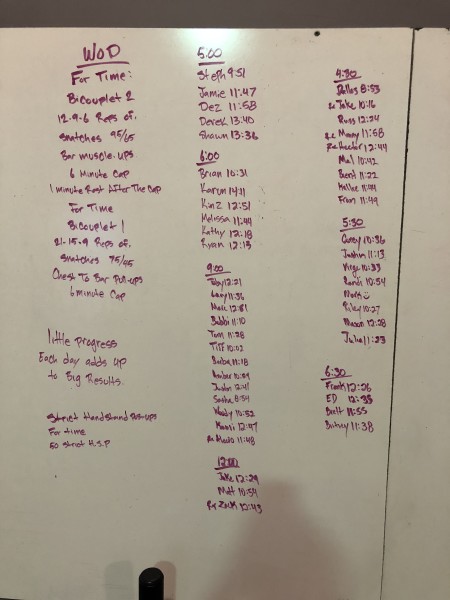 WOD
For Time:
Bicouplet 2
12-9-6 Reps of.
Snatches 95/65
Bar muscle-ups
6 Minute Cap
1 minute Rest After The Cap
For Time
Bicouplet 1
21-15-9 Reps of.
Snatches 75/45
Chest To Bar Pull-ups
6 minute Cap
little progress
Each day adds up
to Big Results.
Strict Handstand Pus-ups
For time
50 Strict H.S.P
5:00
Steph 9:51
Jamie 11:47
Dez 11:58
Derek 13:40
Shawn 13:36
6:00
Brian 10:31
Karyn 14:11
Kinz 12:51
Melissa 11:44
Kathy 12:18
Ryan 12:13
9:00
Toby 12:21
11:36
Marc 12:51
Bobbi 11:10
Tom 11:28
Tiff 10:02
11:18
Amber
Justin 12:41
Sasha 8:54
Woody 10:52
12:47
Rx 11:48
12:00
Jake 12:29
Matt 10:54
Rx Zack 12:43
4:30
Dallas 8:53
Rx Jake 10:16
Russ 12:24
Rx Manny 11:58
Rx Hector 12:44
Mal 10:42
Brent 11:22
11:44
Fran 11:49
5:30
Corey 10:36
Justin 11:13
10:33
Randi 10:54
Mark
Riley 10:27
Mason 12:28
Julie 11:23
6:30
Frank 12:26
ED 12:33
Brett 11:55
Britney 11:38